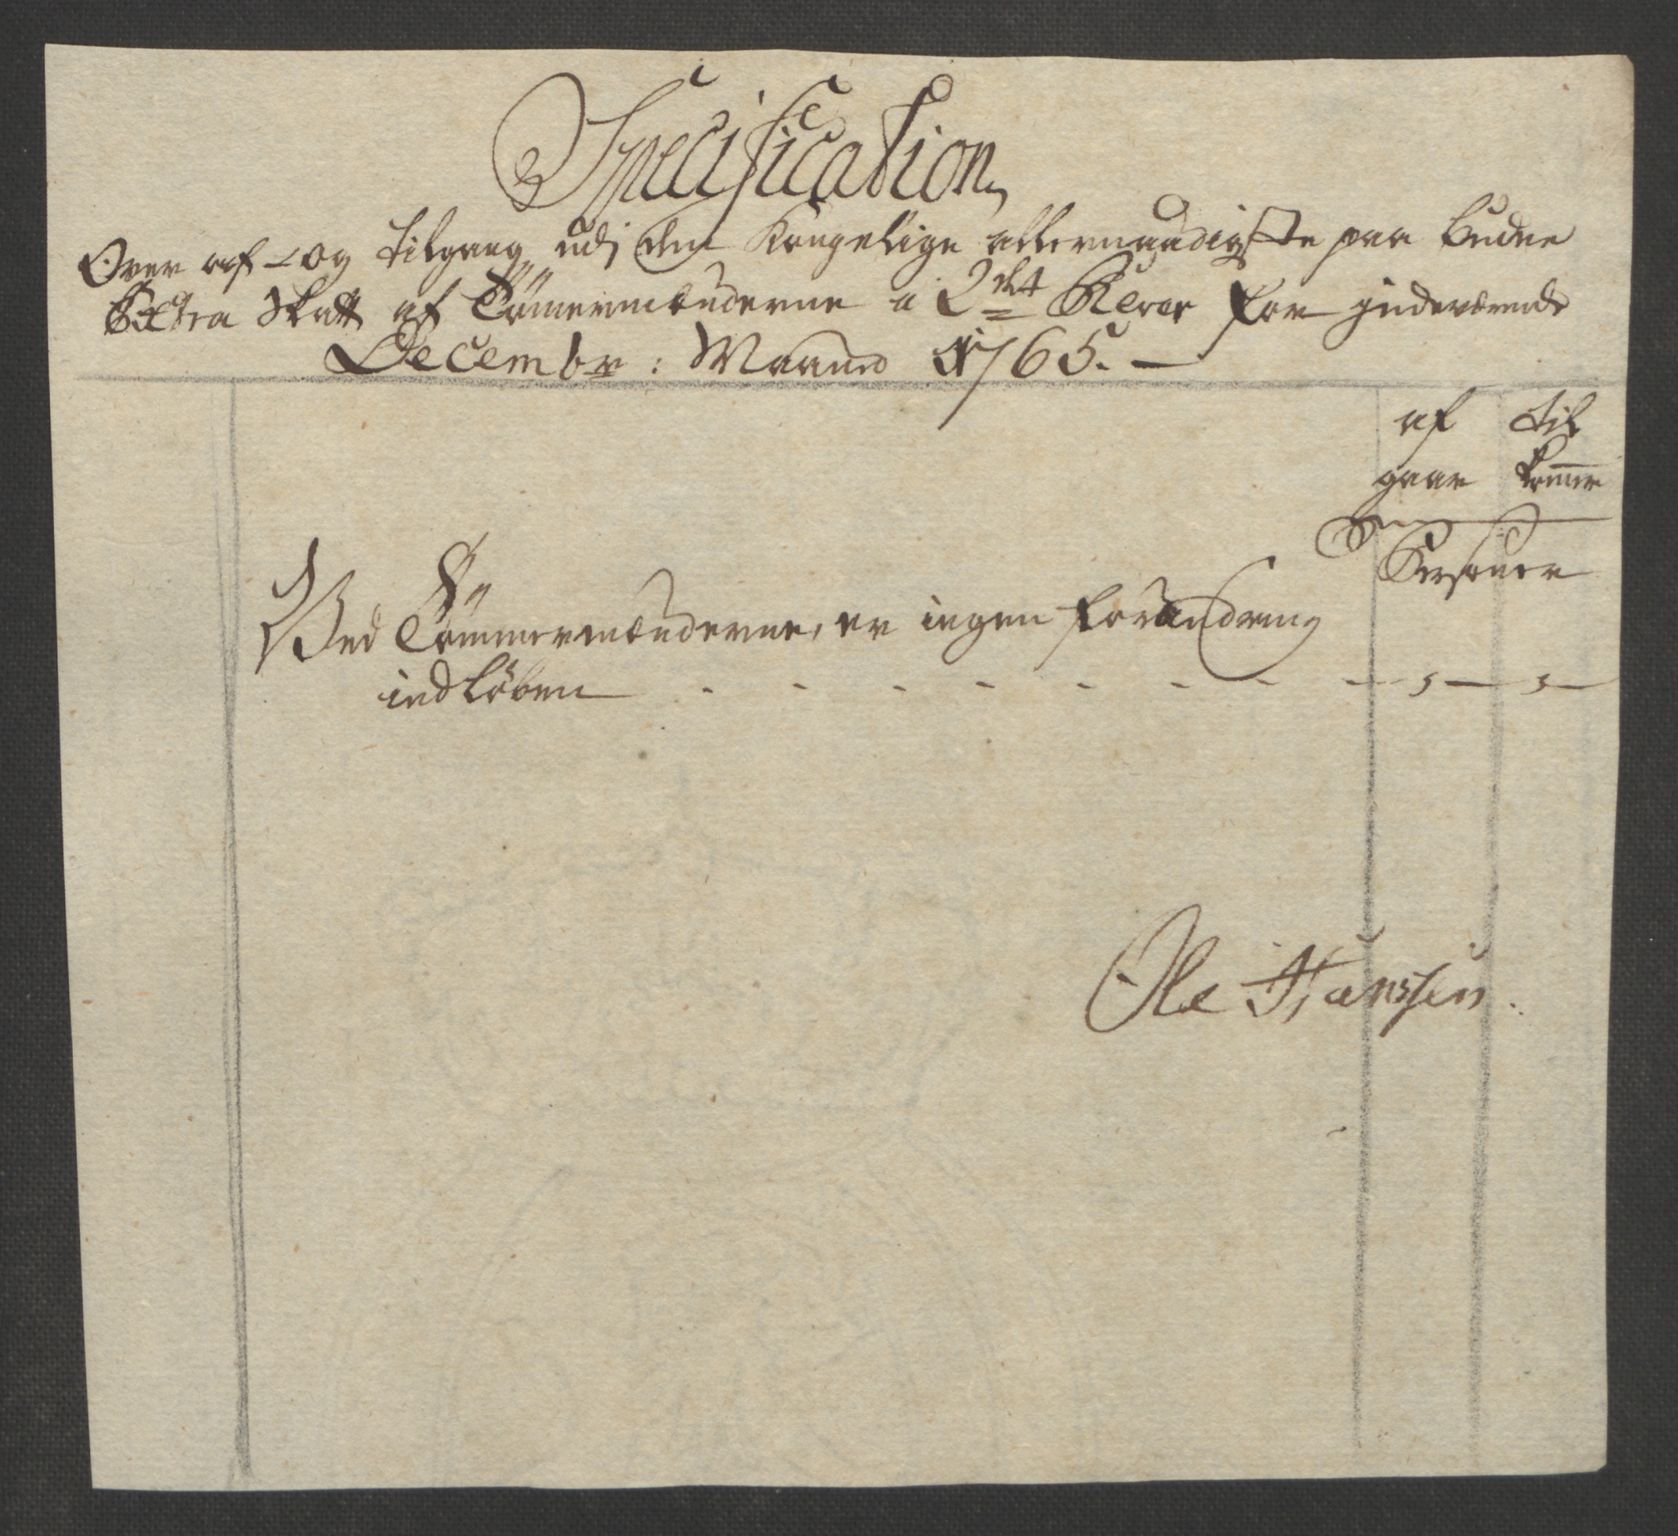 Specification
Over af- og tilgang udj den Kongelige allernaadigste paa budne
Extra Skatt af Tømermænderne a 2det for indeværende
Decembr: Maaned 1765.
af til
gaar kommer
Persohner
Ved Tømmermænderne, er ingen forandring
indløben - - - - - - - -
Ole Hanssen.